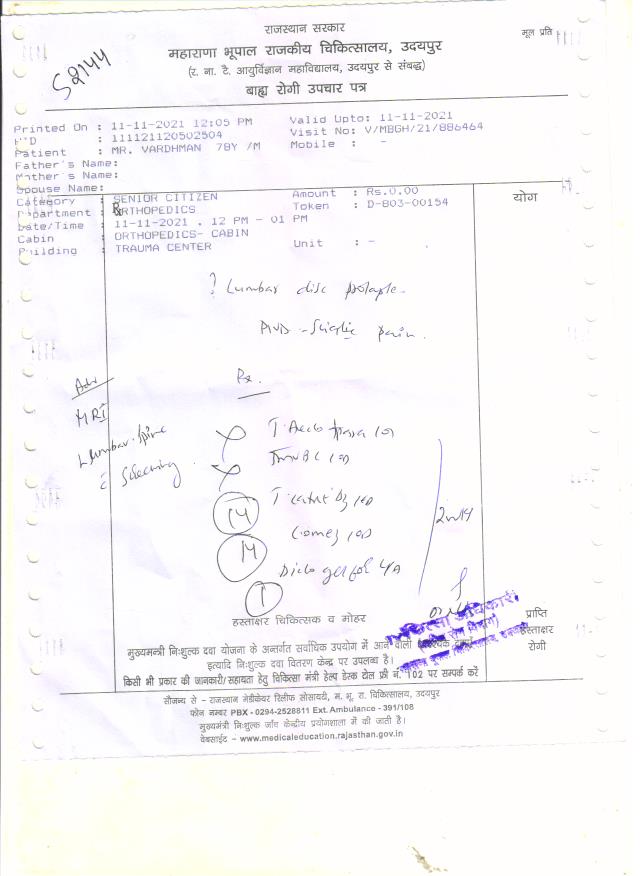 राजस्थान सरकार
मूल प्रति
महाराणा भूपाल राजकीय चिकित्सालय, उदयपुर
(र. ना. टै. आयुर्विज्ञान महाविद्यालय, उदयपुर से संबद्ध)
बाह्य रोगी उपचार पत्र
52144
Printed On : 11-11-2021 12:05 PM Valid Upto: 11-11-2021
: 111121120502504 Visit No: V/MBGH/21/886464
Patient : MR. VARDHMAN 78Y /M Mobile : -
Father's Name:
Mother's Name:
Spouse Name:
Category : SENIOR CITIZEN Amount : Rs.0.00 योग
Department : ORTHOPEDICS Token : D-803-00154
Date/Time : 11-11-2021 , 12 PM - 01 PM
Cabin : ORTHOPEDICS- CABIN
Building : TRAUMA CENTER Unit : -
? Lumbar disc
pain.
Adv Rx.
MRI
Lumbar. Spine
Screening
14
14
Diclo gel
1
हस्ताक्षर चिकित्सक व मोहर
प्राप्ति
हस्ताक्षर
रोगी
चिकित्सा अधिकारी
मुख्यमंत्री निःशुल्क दवा योजना के अन्तर्गत सर्वाधिक उपयोग में आने वाली
इत्यादि निःशुल्क दवा वितरण केन्द्र पर उपलब्ध है।
किसी भी प्रकार की जानकारी/सहायता हेतु चिकित्सा मंत्री हेल्प डेस्क टोल फ्री नं. 102 पर सम्पर्क करें
सौजन्य से - राजस्थान मेडीकेयर रिलीफ सोसायटी, म. भू. रा. चिकित्सालय, उदयपुर
फोन नम्बर PBX - 0294-2528811 Ext. Ambulance - 391/108
मुख्यमंत्री निःशुल्क जाँच केन्द्रीय प्रयोगशाला में की जाती है।
वेबसाईट - www.medicaleducation.rajasthan.gov.in